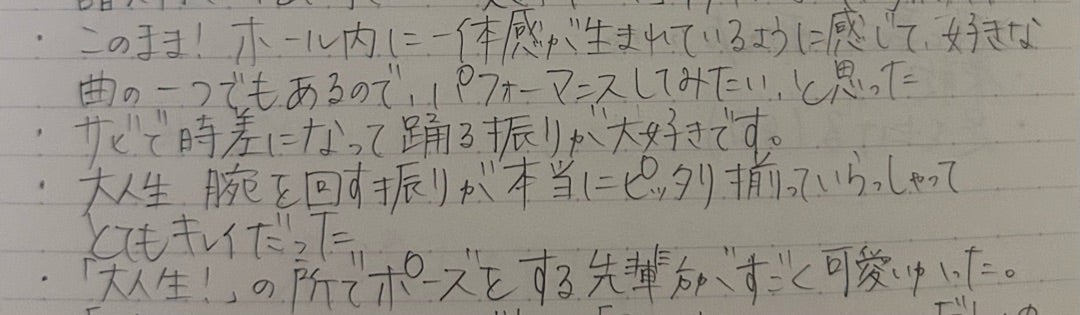 ・このまま！ホール内に一体感が生まれているように感じて、好きな
曲の一つでもあるので、パフォーマンスしてみたい、と思った
・サビで時差になって踊る振りが大好きです。
・大人生 腕を回す振りが本当にピッタリ揃っていらっしゃって
とてもキレイだった
・「大人生！」の所でポーズをする先輩方がすごく可愛いかった。